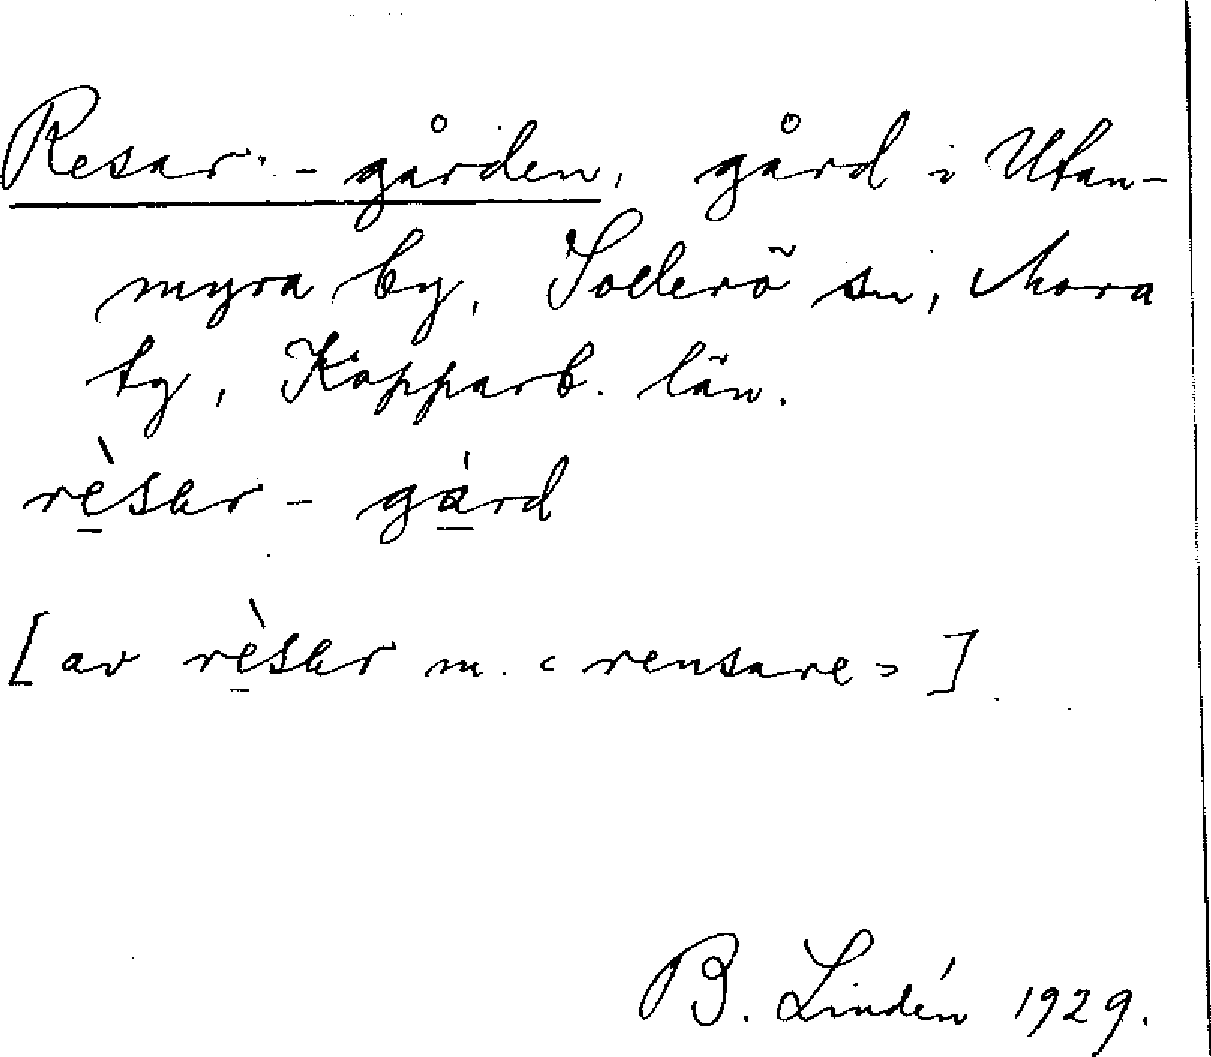 Resar-gården, gård i Utan-
myra by, Sollerö sn, Mora
tg, Kopparb. län.
rèsər-gárd
[av rèsər m. "rensare"]
B. Lindén 1929.